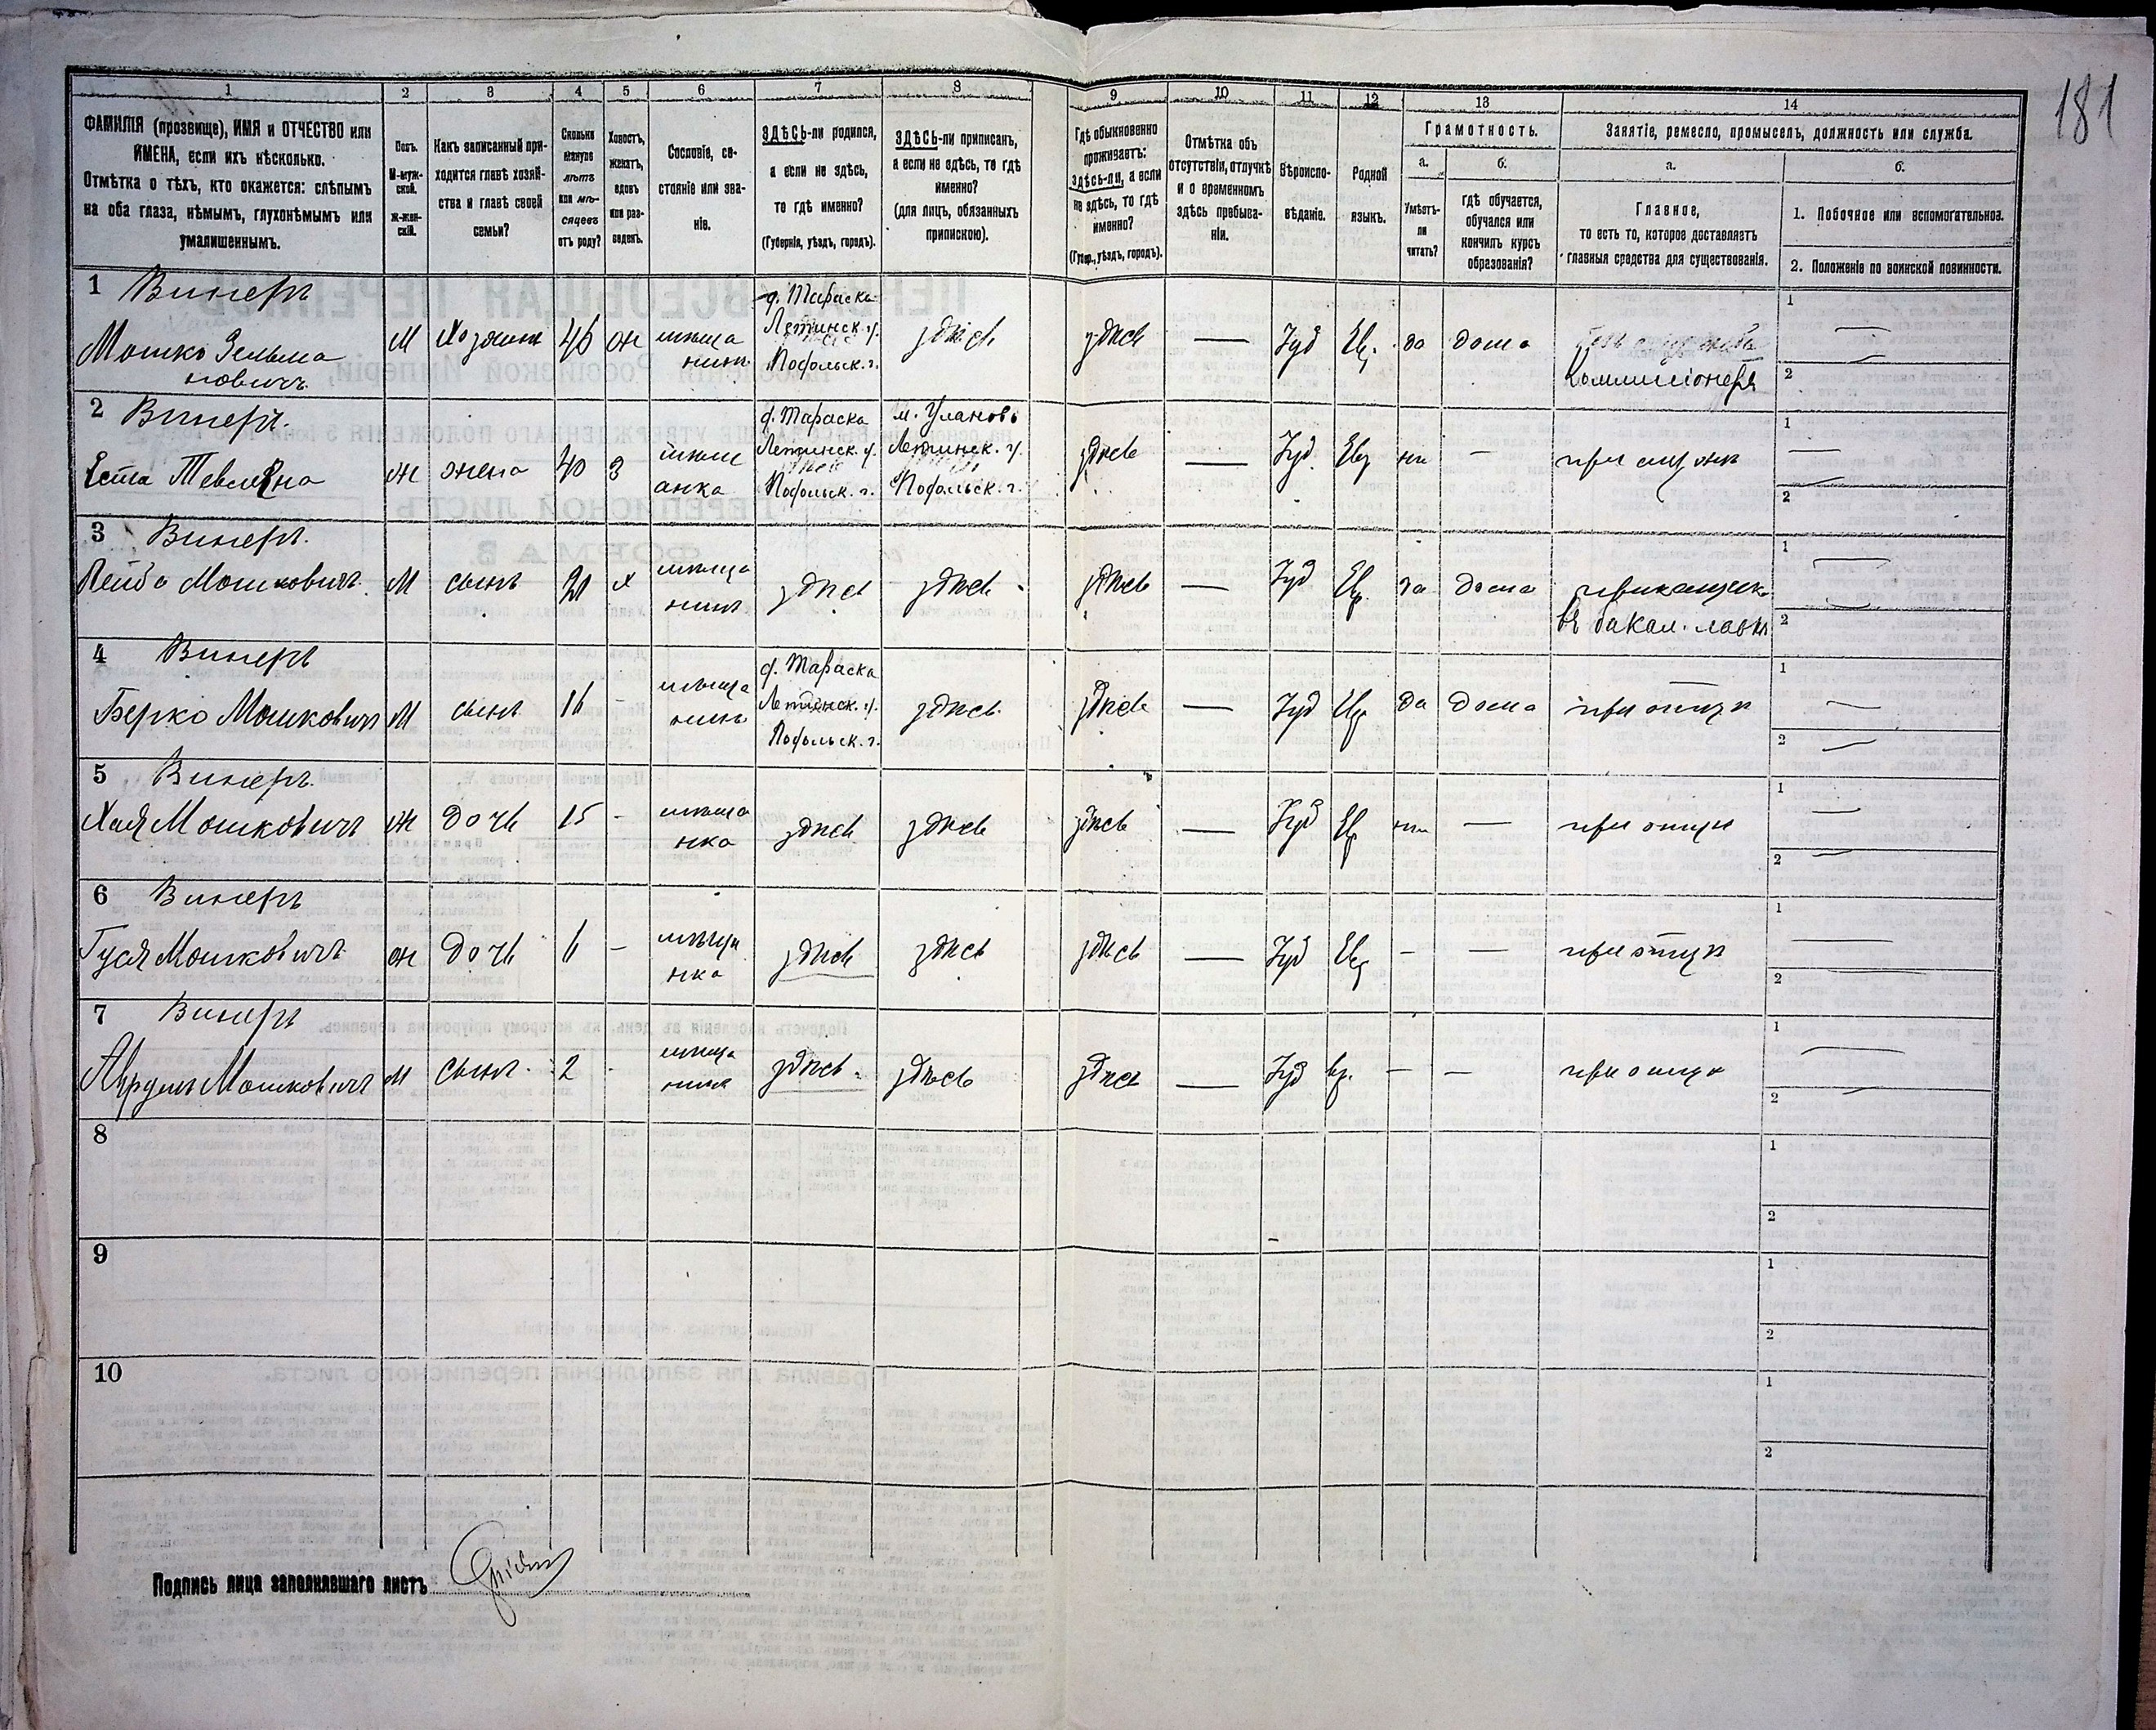 181
1 2 3 4 5 6 7 8 9 10 11 12 13 14
ФАМИЛІЯ (прозвище), ИМЯ и ОТЧЕСТВО или
ИМЕНА, если ихъ нѣсколько.
Отмѣтка о тѣхъ, кто окажется: слѣпымъ
на оба глаза, нѣмымъ, глухонѣмымъ или
умалишеннымъ.
Полъ.
М-муж-
ской.
Ж-жен-
скій.
Какъ записанный при-
ходится главѣ хозяй-
ства и главѣ своей
семьи?
Сколько
минуло
лѣтъ
или мѣ-
сяцевъ
отъ роду?
Холостъ,
женатъ,
вдовъ
или раз-
веденъ.
Сословіе, со-
стояніе или зва-
ніе.
ЗДѢСЬ-ли родился,
а если не здѣсь,
то гдѣ именно?
(Губернія, уѣздъ, городъ).
ЗДѢСЬ-ли приписанъ,
а если не здѣсь, то гдѣ
именно?
(для лицъ, обязанныхъ
припискою).
Гдѣ обыкновенно
проживаетъ:
здѣсь-ли, а если
не здѣсь, то гдѣ
именно?
(Губер., уѣздъ, городъ).
Отмѣтка объ
отсутствіи, отлучкѣ
и о временномъ
здѣсь пребыва-
ніи.
Вѣроиспо-
вѣданіе.
Родной
языкъ.
Грамотность.
а. б.
Умѣетъ-
ли
читать?
гдѣ обучается,
обучался или
кончилъ курсъ
образованія?
Занятіе, ремесло, промыселъ, должность или служба.
а. б.
Главное,
то есть то, которое доставляетъ
главныя средства для существованія.
1. Побочное или вспомогательное.
2. Положеніе по воинской повинности.
1 Винеръ
Мошко Зельма
новичъ
М Хозяинъ 46 ж мѣща
нинъ
д. Тараска
Летинск. у.
Подольск. г.
здѣсь здѣсь — Іуд Евр. да дома
Коммисіонеръ
1
2
2 Винеръ.
Еста
ж жена 40 з мѣщ
анка
д. Тараска
Летинск. у.
Подольск. г.
м. Улановъ
Летинск. у.
Подольск. г.
здѣсь — Іуд. Евр нѣ — при мужѣ
1
2
3 Винеръ.
Лейба Мошковичъ.
М сынъ 21 х мѣща
нинъ
здѣсь здѣсь здѣсь — Іуд Евр. да дома
прикащик.
въ бакал. лавкѣ
1
2
4 Винеръ
Берко Мошковичъ
М сынъ 16 - мѣща
нинъ
д. Тараска
Летинск. у.
Подольск. г.
здѣсь здѣсь — Іуд Евр да дома при отцѣ
1
2
5 Винеръ.
Хая Мошковичъ
ж дочь 15 - мѣща
нка
здѣсь здѣсь здѣсь — Іуд Евр нѣ — при отцѣ
1
2
6 Винеръ
Гуся Мошковичъ
ж дочь 6 - мѣща
нка
здѣсь здѣсь здѣсь — Іуд Евр — — при отцѣ
1
2
7 Винеръ
Аврумъ Мошковичъ
М сынъ 2 - мѣща
нинъ
здѣсь здѣсь здѣсь — Іуд Евр. — — при отцѣ
1
2
8
1
2
9
1
2
10
1
2
Подпись лица заполнявшаго листъ